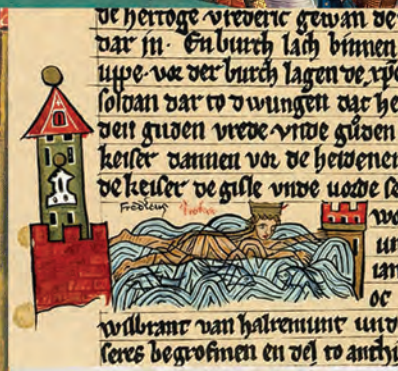 de hertoge vrederic gewan de
dar in. En burch lach binnen
uppe. vor der burch lagen de
soldan dar to dwungen dat he
den guden vrede vnde guden
keiser dannen vor de heidenen
de keiser de gisle vnde uorde se
Fredericus
wo
un
ian
oc
wilbrant van halremunt und
seres begrofinen en del to anthi